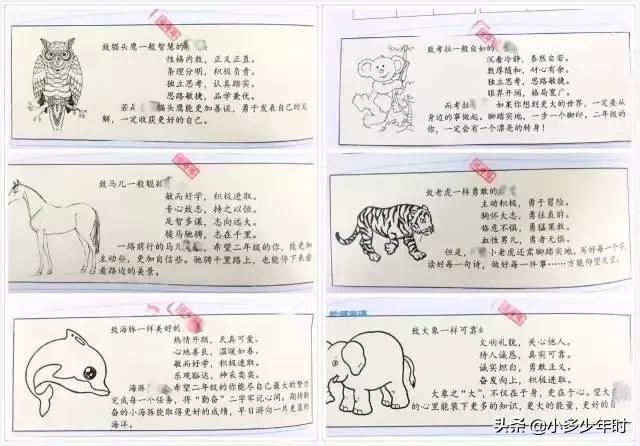 致猫头鹰一般智慧的
性格内敛，正义正直。
条理分明，积极负责。
独立思考，认真踏实。
思路敏捷，品学兼优。
若 猫头鹰能更加善谈，勇于发表自己的见
解，一定收获更好的自己。
致马儿一般聪
敏而好学，积极进取。
专心致志，持之以恒。
足智多谋，志向远大。
骏马驰骋，志在千里。
一路前行的马儿 希望二年级的你，能更加
主动些，更加自信些。驰骋千里路上，也能停下来看
看路边的美景。
致海豚一样美好的
热情开朗，天真可爱。
心地善良，温暖如春。
敏而好学，积极进取。
乐观豁达，神采奕奕。
海豚 希望二年级的你能尽自己最大的努力
完成每一个任务，将“勤奋”二字牢记心间。期待勤
奋的小海豚能取得更好的成绩，早日游向一片更蓝的
海洋。
致考拉一般自如的
沉着冷静，泰然自若。
敦厚随和，耐心有余。
独立思考，思路敏捷。
眼界开阔，格局宽广。
而考拉 如果你想到更大的世界，一定要从
身边的事做起。脚踏实地，一步一个脚印，二年级的
你，一定会有一个漂亮的转身！
致老虎一样勇敢的
主动积极，勇于冒险。
胸怀大志，勇往直前。
临危不惧，勇猛果敢。
血性男儿，勇者无惧。
但是， 小老虎还需脚踏实地，写好每一个字，
读好每一句诗，做好每一件事……方能仰望天空。
致大象一样可靠
文明礼貌，关心他人。
待人诚恳，真实可靠。
诚实坦白，勇敢正义。
奋发向上，积极进取。
大象之“大”，不仅在于身，更在于心。望大
的心里能装下更多的知识，更大的能量，更好的自
头条 @小多少年时